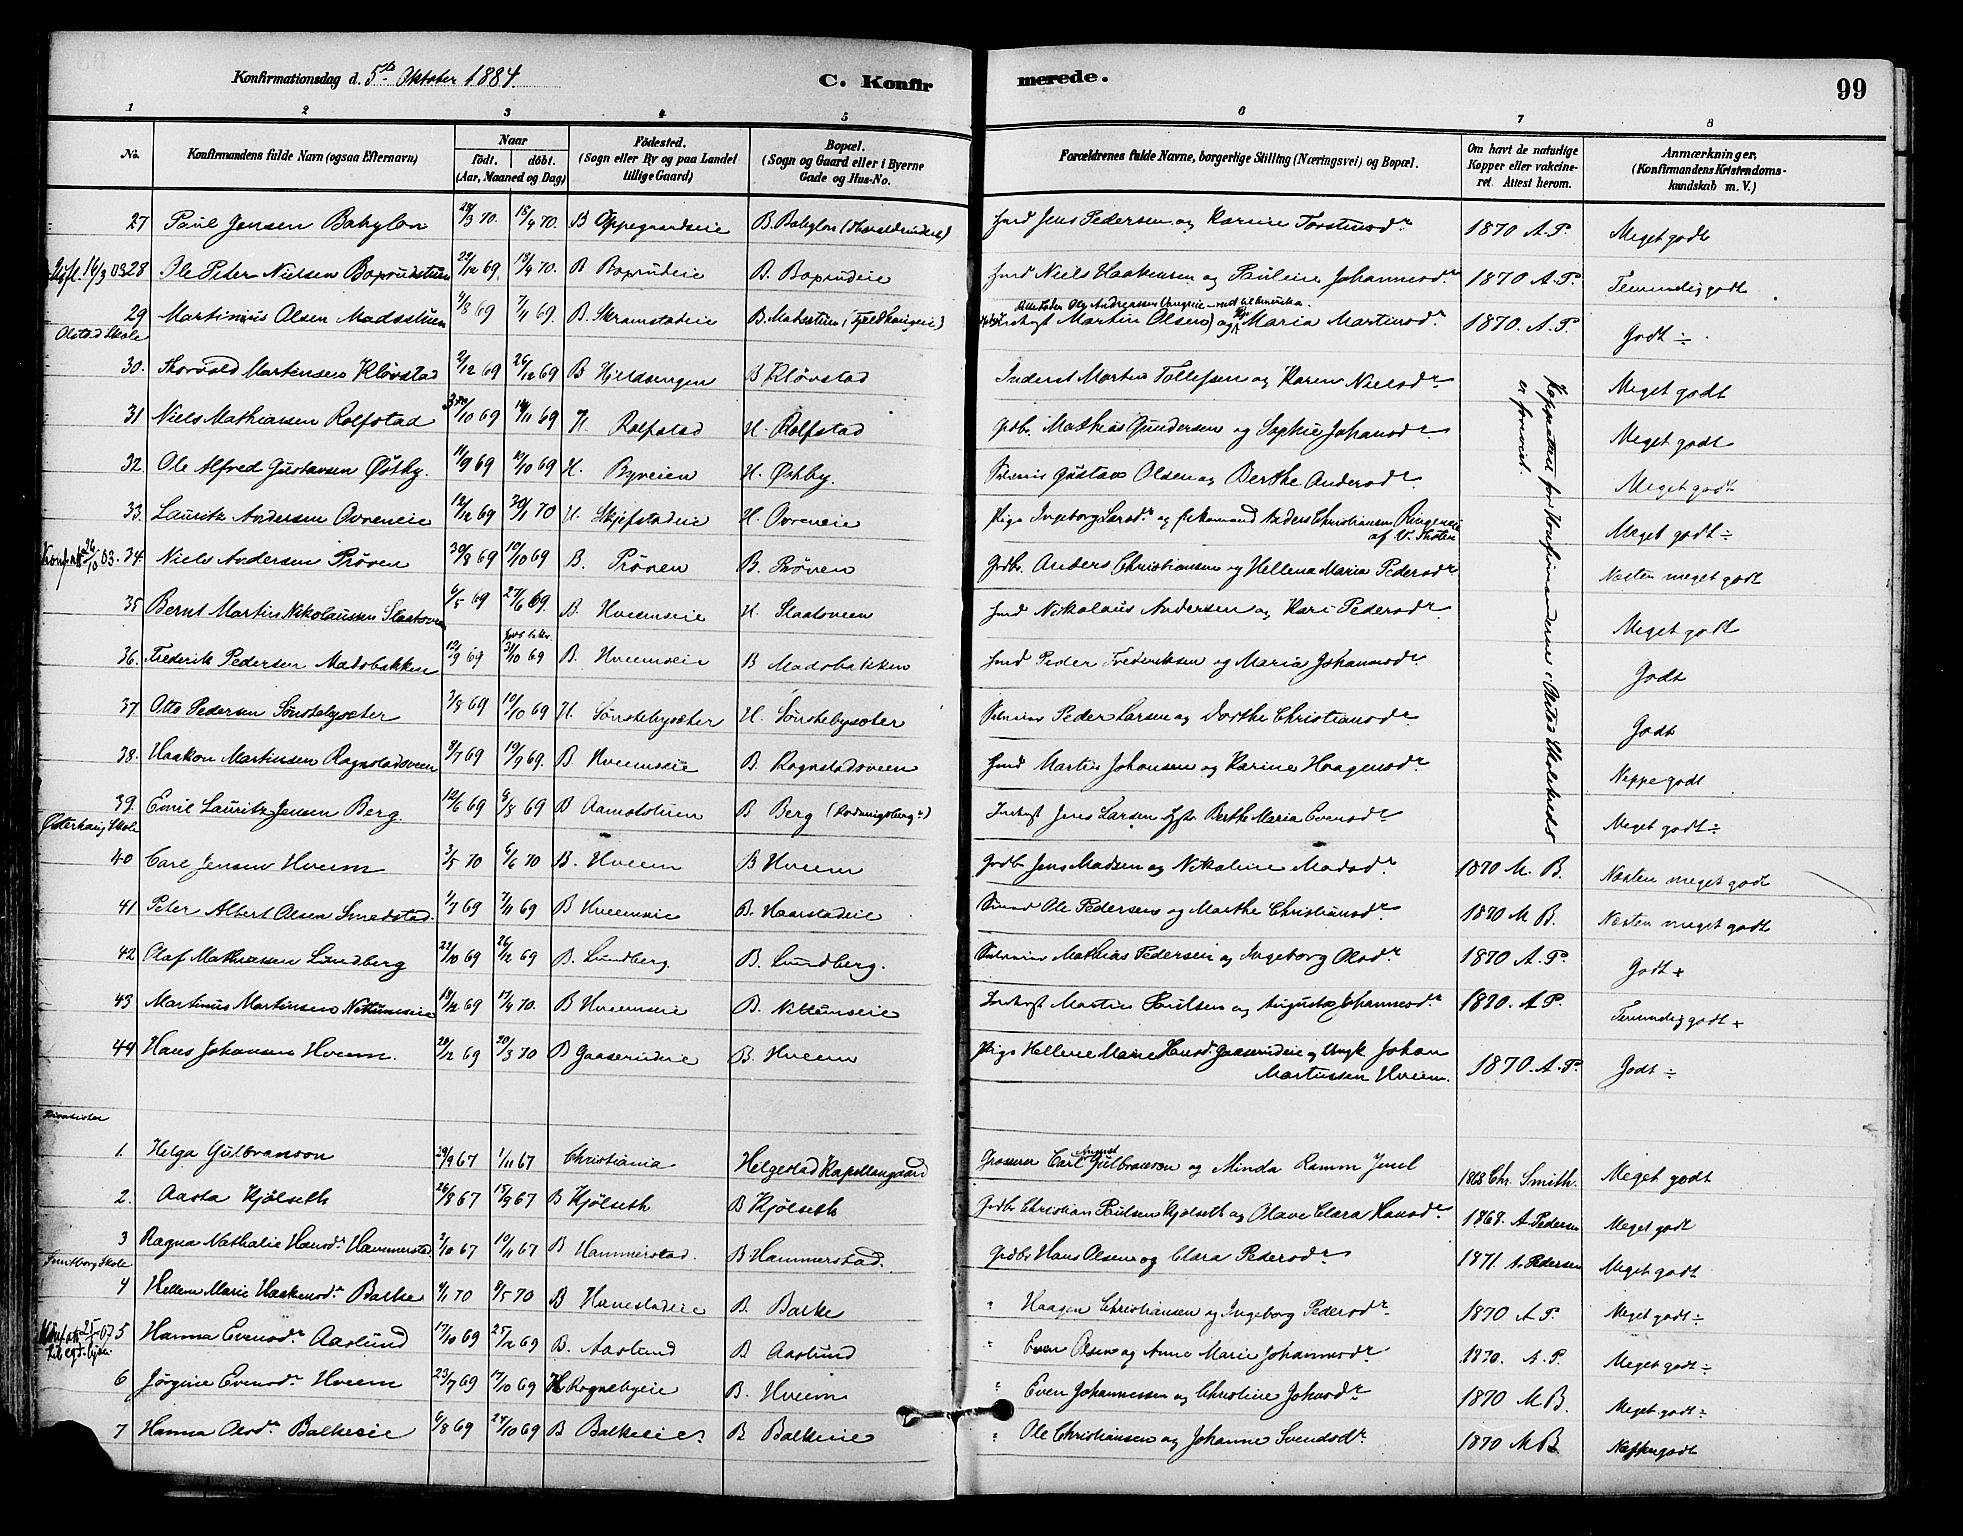 Konfirmationsdag d. 5te Oktober 1884.
C. Konfirmerede.
99
1 2 3 4 5 6 7 8
No.
Konfirmandens fulde Navn (ogsaa Efternavn)
Naar
födt. döbt.
(Aar, Maaned og Dag)
Födested.
(Sogn eller By og paa Landet
tillige Gaard)
Bopæl.
(Sogn og Gaard eller i Byerne
Gade og Hus-No.
Forældrenes fulde Navne, borgerlige Stilling (Næringsvei) og Bopæl.
Om havt de naturlige
Kopper eller vakcine-
ret. Attest herom.
Anmærkninger.
(Konfirmandens Kristendoms-
kundskab m. V.)
27 Paul Jensen Babylon 28/3 70. 18/4 70. B Oppegaardseie B. Babylon Jens Pedersen og Karine Torstensdr 1870 A.P. Meget godt
16/3 03 28 Ole Peter Nielsen Boprudstuen 29/12 69. 18/4 70. B Boprudeie B. Boprudeie Niels Haakensen og Pauline Johannesdr 1870 A.P. Temmelig godt
29 Martinius Olsen Madsstuen 4/8 69 7/11 69. B. Skramstadeie B. Madsstuen Martin Olsen) og Maria Martinsdr 1870. A.P. Godt ÷
Olstad Skole
30. Thorvald Martinsen Kløvstad 2/12 69 26/12 69 B B Kløvstad Inderst Martin Tollefsen og Karen Nielsdr Meget godt
31 Niels Mathiassen Rolfstad /10 69 14/11 69 H Rolfstad H. Rolfstad Gdbr. Mathias Gundersen og Sophie Johansdr Meget godt
32. Ole Alfred Gustavsen Østby. 11/9 69 /10 69 H. Byveien H. Østby. Gustav Olsen og Berthe Andersdr Meget godt
33. Lauritz Andersen Ovreneie 18/12 69 30/1 70 H. Skjefstadeie H. Ovreneie Pige Ingeborg Larsdr og Anders Christiansen
af V. Thoten Meget godt ÷
Konf. att. 26/10 03. 34. Niels Andersen Prøven 29/8 69 10/10 69 B. Prøven B. Prøven Gdbr. Anders Christiansen og Hellena Maria Pedersdr Næsten meget godt
35 Bernt Martin Nikolaussen Slaatsveen 6/5 69 27/6 69. B. Hveemseie H. Slaatsveen Nikolaus Andersen og Kari Pedersdr Meget godt
36. Frederik Pedersen Madsbakken 12/9 69 31/10 69 B. Hveemseie B Madsbakken Peder Frederiksen og Maria Johannesdr Godt
37 Otto Pedersen Sønstebysæter 3/8 69 10/10 69 H. Sønstebysæter H. Sønstebysæter Peder Larsen og Dorthe Christiansdr Godt
38. Haakon Martinsen Rognstadsveen 8/7 69 19/9 69. B Hveemseie B. Rognstadsveen Martin Johansen og Karine Haagensdr Neppe godt
39. Emil Lauritz Jensen Berg. 12/6 69 8/8 69 B Aamotstuen B Berg Jens Larsen Berthe Maria Evensdr Meget godt ÷
Kopattest for Konfirmanderne i Olstad Skolekreds
er forevist.
Østerhaug Skole
40 Carl Jensen Hveem 3/5 70 6/6 70 B. Hveem B Hveem Gdbr Jens Madsen og Nikoline Madsdr 1870 M. B. Næsten meget godt
41 Peter Albert Olsen Smedstad. 1/7 69 7/11 69 B Hveemseie B. Haarstadeie Ole Pedersen og Marthe Christiansdr 1870 M B. Næsten meget godt
42 Olaf Mathiassen Lundberg 22/10 69 26/12 69 B. Lundberg. B. Lundberg. Mathias Pedersen og Ingeborg Olsdr 1870 A.P. Godt +
43 Martinus Martinsen Nettumseie 18/12 69 17/4 70. B Hveemseie B. Nettumseie Martin Paulsen og Augusta Johannesdr 1870. A.P. Temmelig godt +
44 Hans Johansen Hveem. 29/12 69 20/3 70 B Gaaserudeie B. Hveem Pige Hellene Marie Hansdr Gaaserudeie og Ungk Johan
Martinsen Hveem. 1870. A.P. Godt ÷
1. Helga Gulbranson 29/9 67 1/11 67 Christiania Helgestad Kapellangaard Grosserer Carl August Gulbranson og Minda Ramm Juul 1868 Chr. Smith. Meget godt
2. Aasta Kjølseth 26/8 67 15/9 67 B Kjølseth B Kjølseth Gdbr Christian Paulsen Kjølseth og Olave Clara Hansdr 1868. A. Pedersen Meget godt
3 Ragna Nathalie Hansdr Hammerstad. 2/10 67 10/11 67 B Hammerstad. B. Hammerstad. Gdbr Hans Olsen og Clara Pedersdr 1871. A. Pedersen Meget godt
4 Hellene Marie Haakensdr Barke 4/1 70 8/5 70 B B. Barke " Haagen Christiansen og Ingeborg Pedersdr 1870 A.P. Meget godt ÷
5 Hanna Evensdr Aaslund 17/10 69 25/12 69 B. Aaslund B Aaslund " Even Olsen og Anne Marie Johannesdr 1870. A.P. Meget godt ÷
6 Jørgine Evensdr Hveem 23/7 69 17/10 69 H Rognebyeie B. Hveem " Even Johannessen og Christine Johnsdr 1870 M B. Meget godt ÷
7 Hanna Olsdr Balkeeie 6/8 69 24/10 69 B Balkeeie B Balkeeie " Ole Christiansen og Johanne Svendsdr. 1870 M B Neppe godt